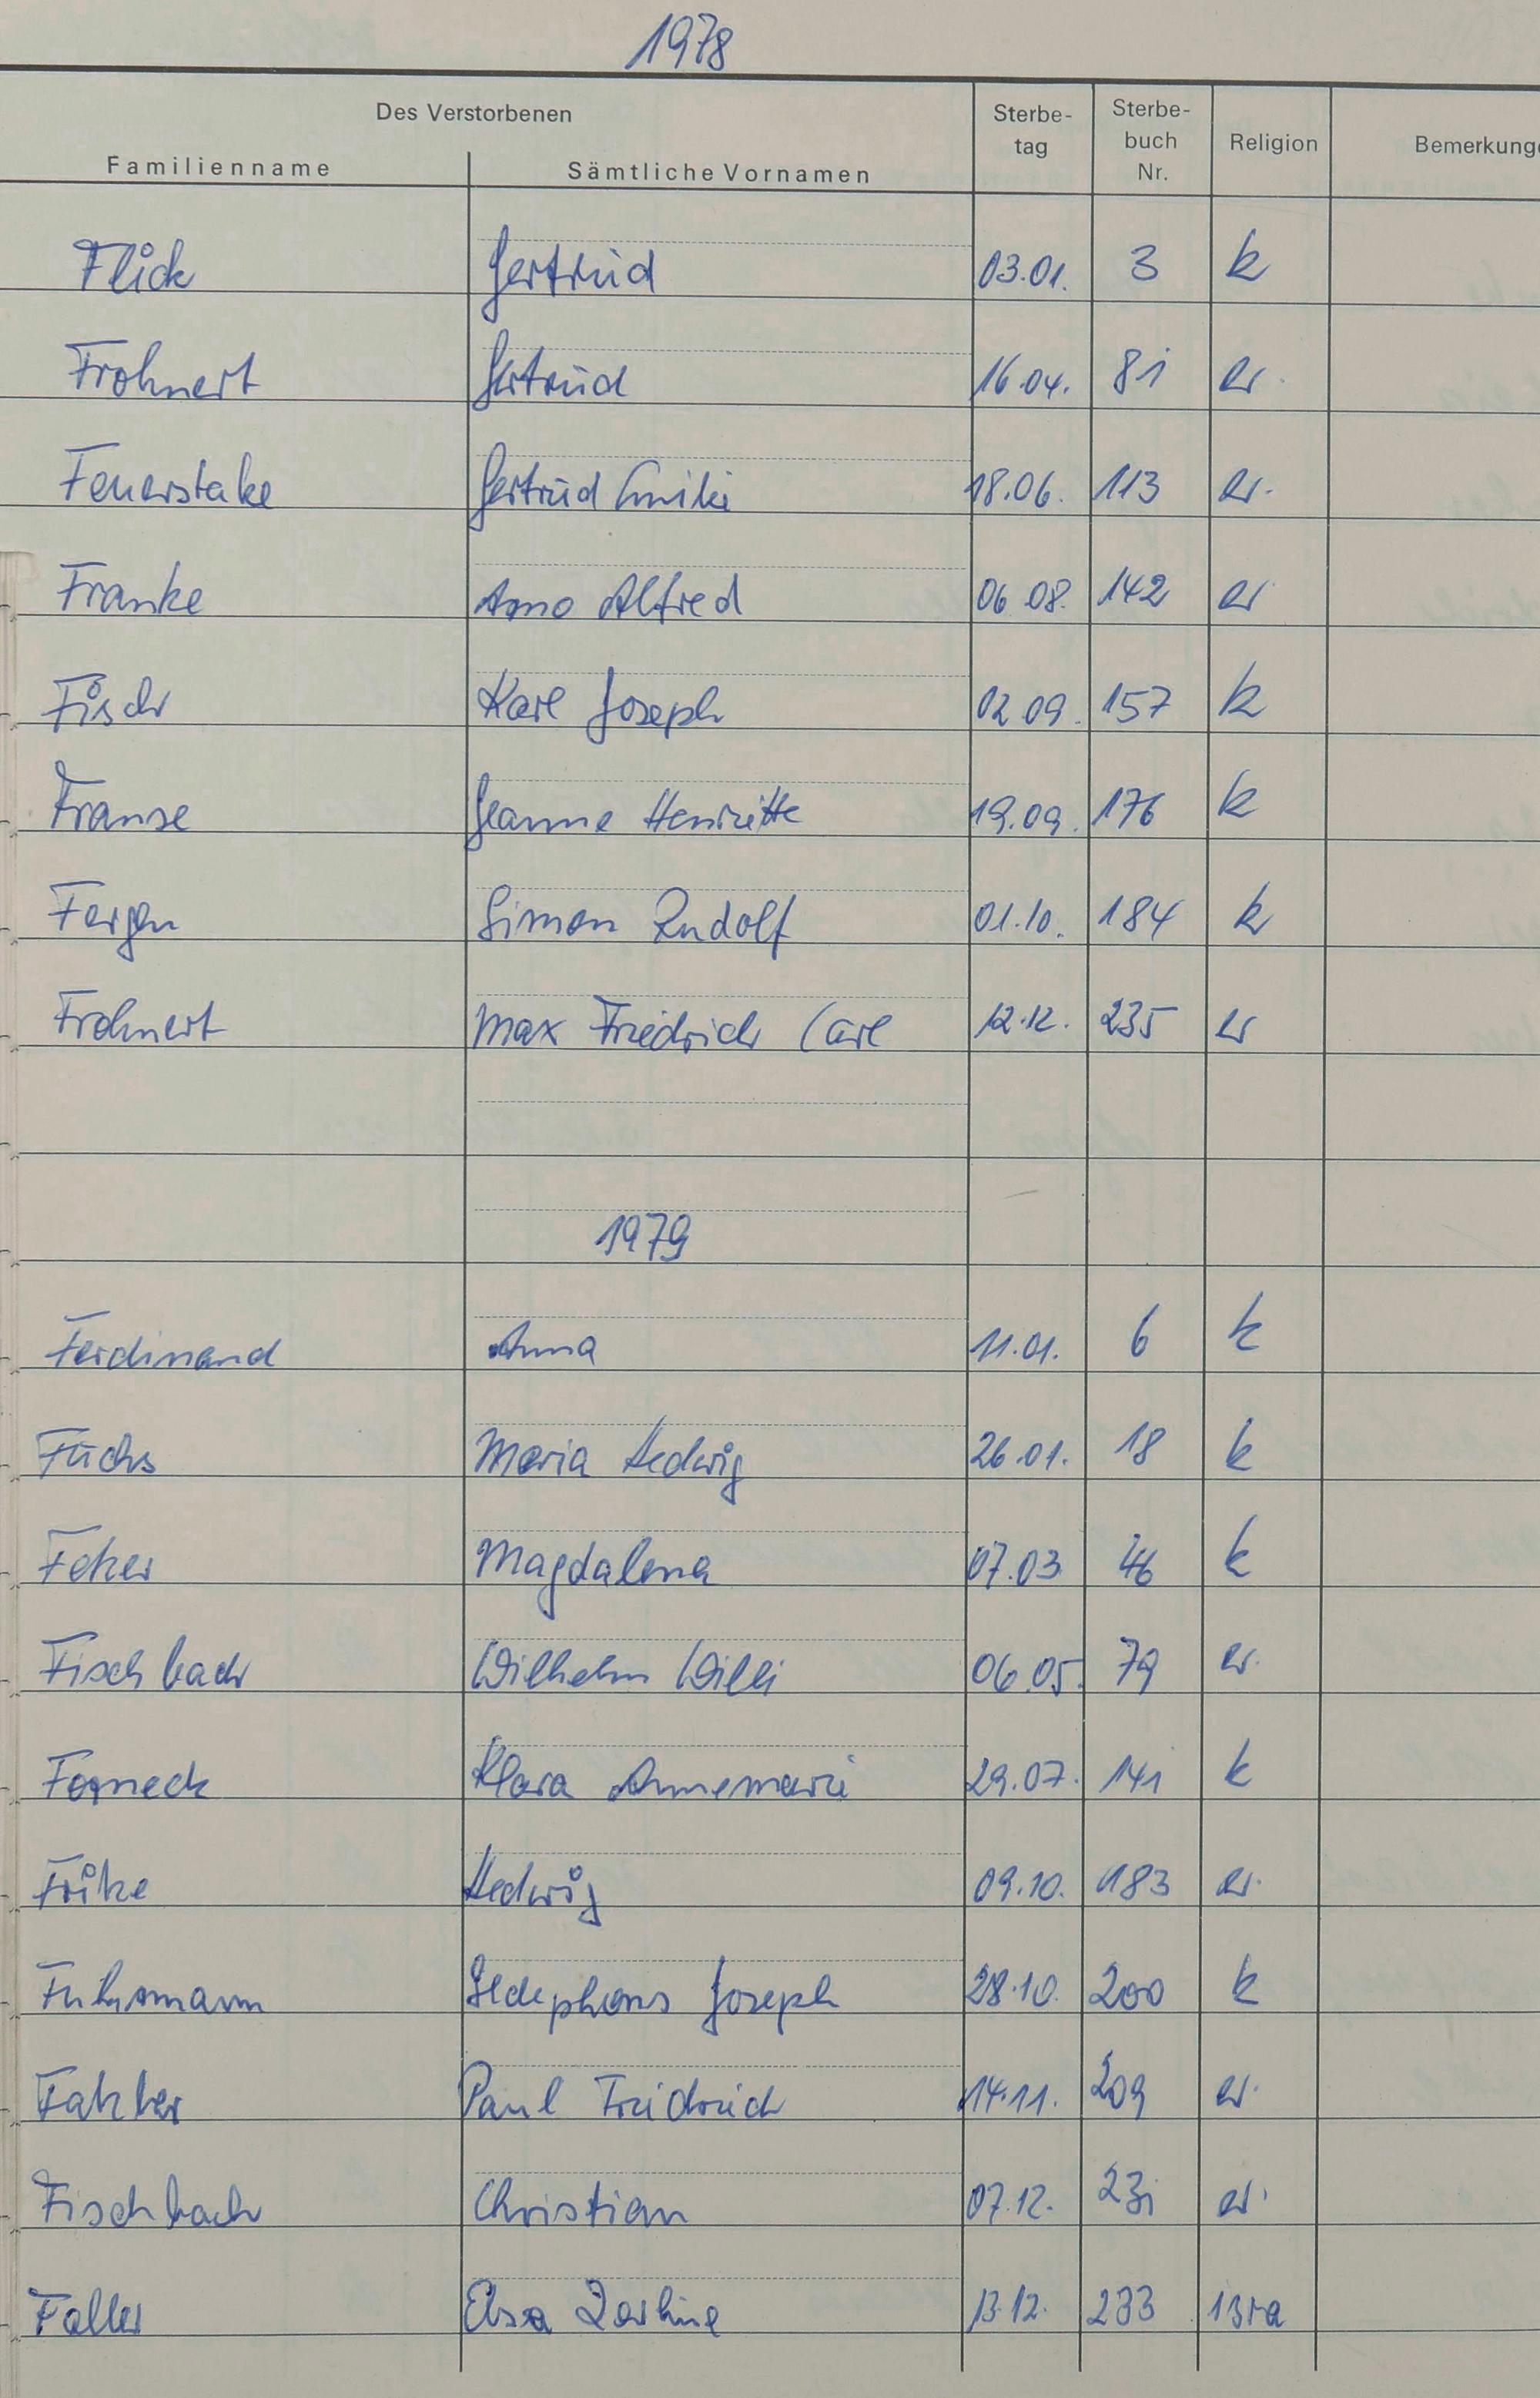 1978
Des Verstorbenen Sterbe- Sterbe- Religion Bemerkunge
tag buch
Familienname Sämtliche Vornamen Nr.
Flick Gertrud 03.01. 3 k
Frohnert Gertrud 16.04. 81 ev.
Feuerstake Gertrud Emilie 18.06. 113 ev.
Franke Arno Alfred 06.08. 142 ev
Fisch Karl Joseph 02.09. 157 k
Franse Jeanne Henriette 19.09. 176 k
Fergen Simon Rudolf 01.10. 184 k
Frohnert Max Friedrich Carl 12.12. 235 ev
1979
Ferdinand Anna 11.01. 6 k
Fuchs Maria Hedwig 26.01. 18 k
Magdalena 07.03 46 k
Fischbach Wilhelm Willi 06.05. 79 ev.
Forneck Klara Annemarie 29.07. 141 k
Frike Hedwig 09.10. 183 ev.
Fuhrmann Ildephons Joseph 28.10. 200 k
Paul Friedrich 14.11. 209 ev.
Fischbach Christian 07.12. 231 ev.
Faller Elsa Zerline 13.12. 233 isra